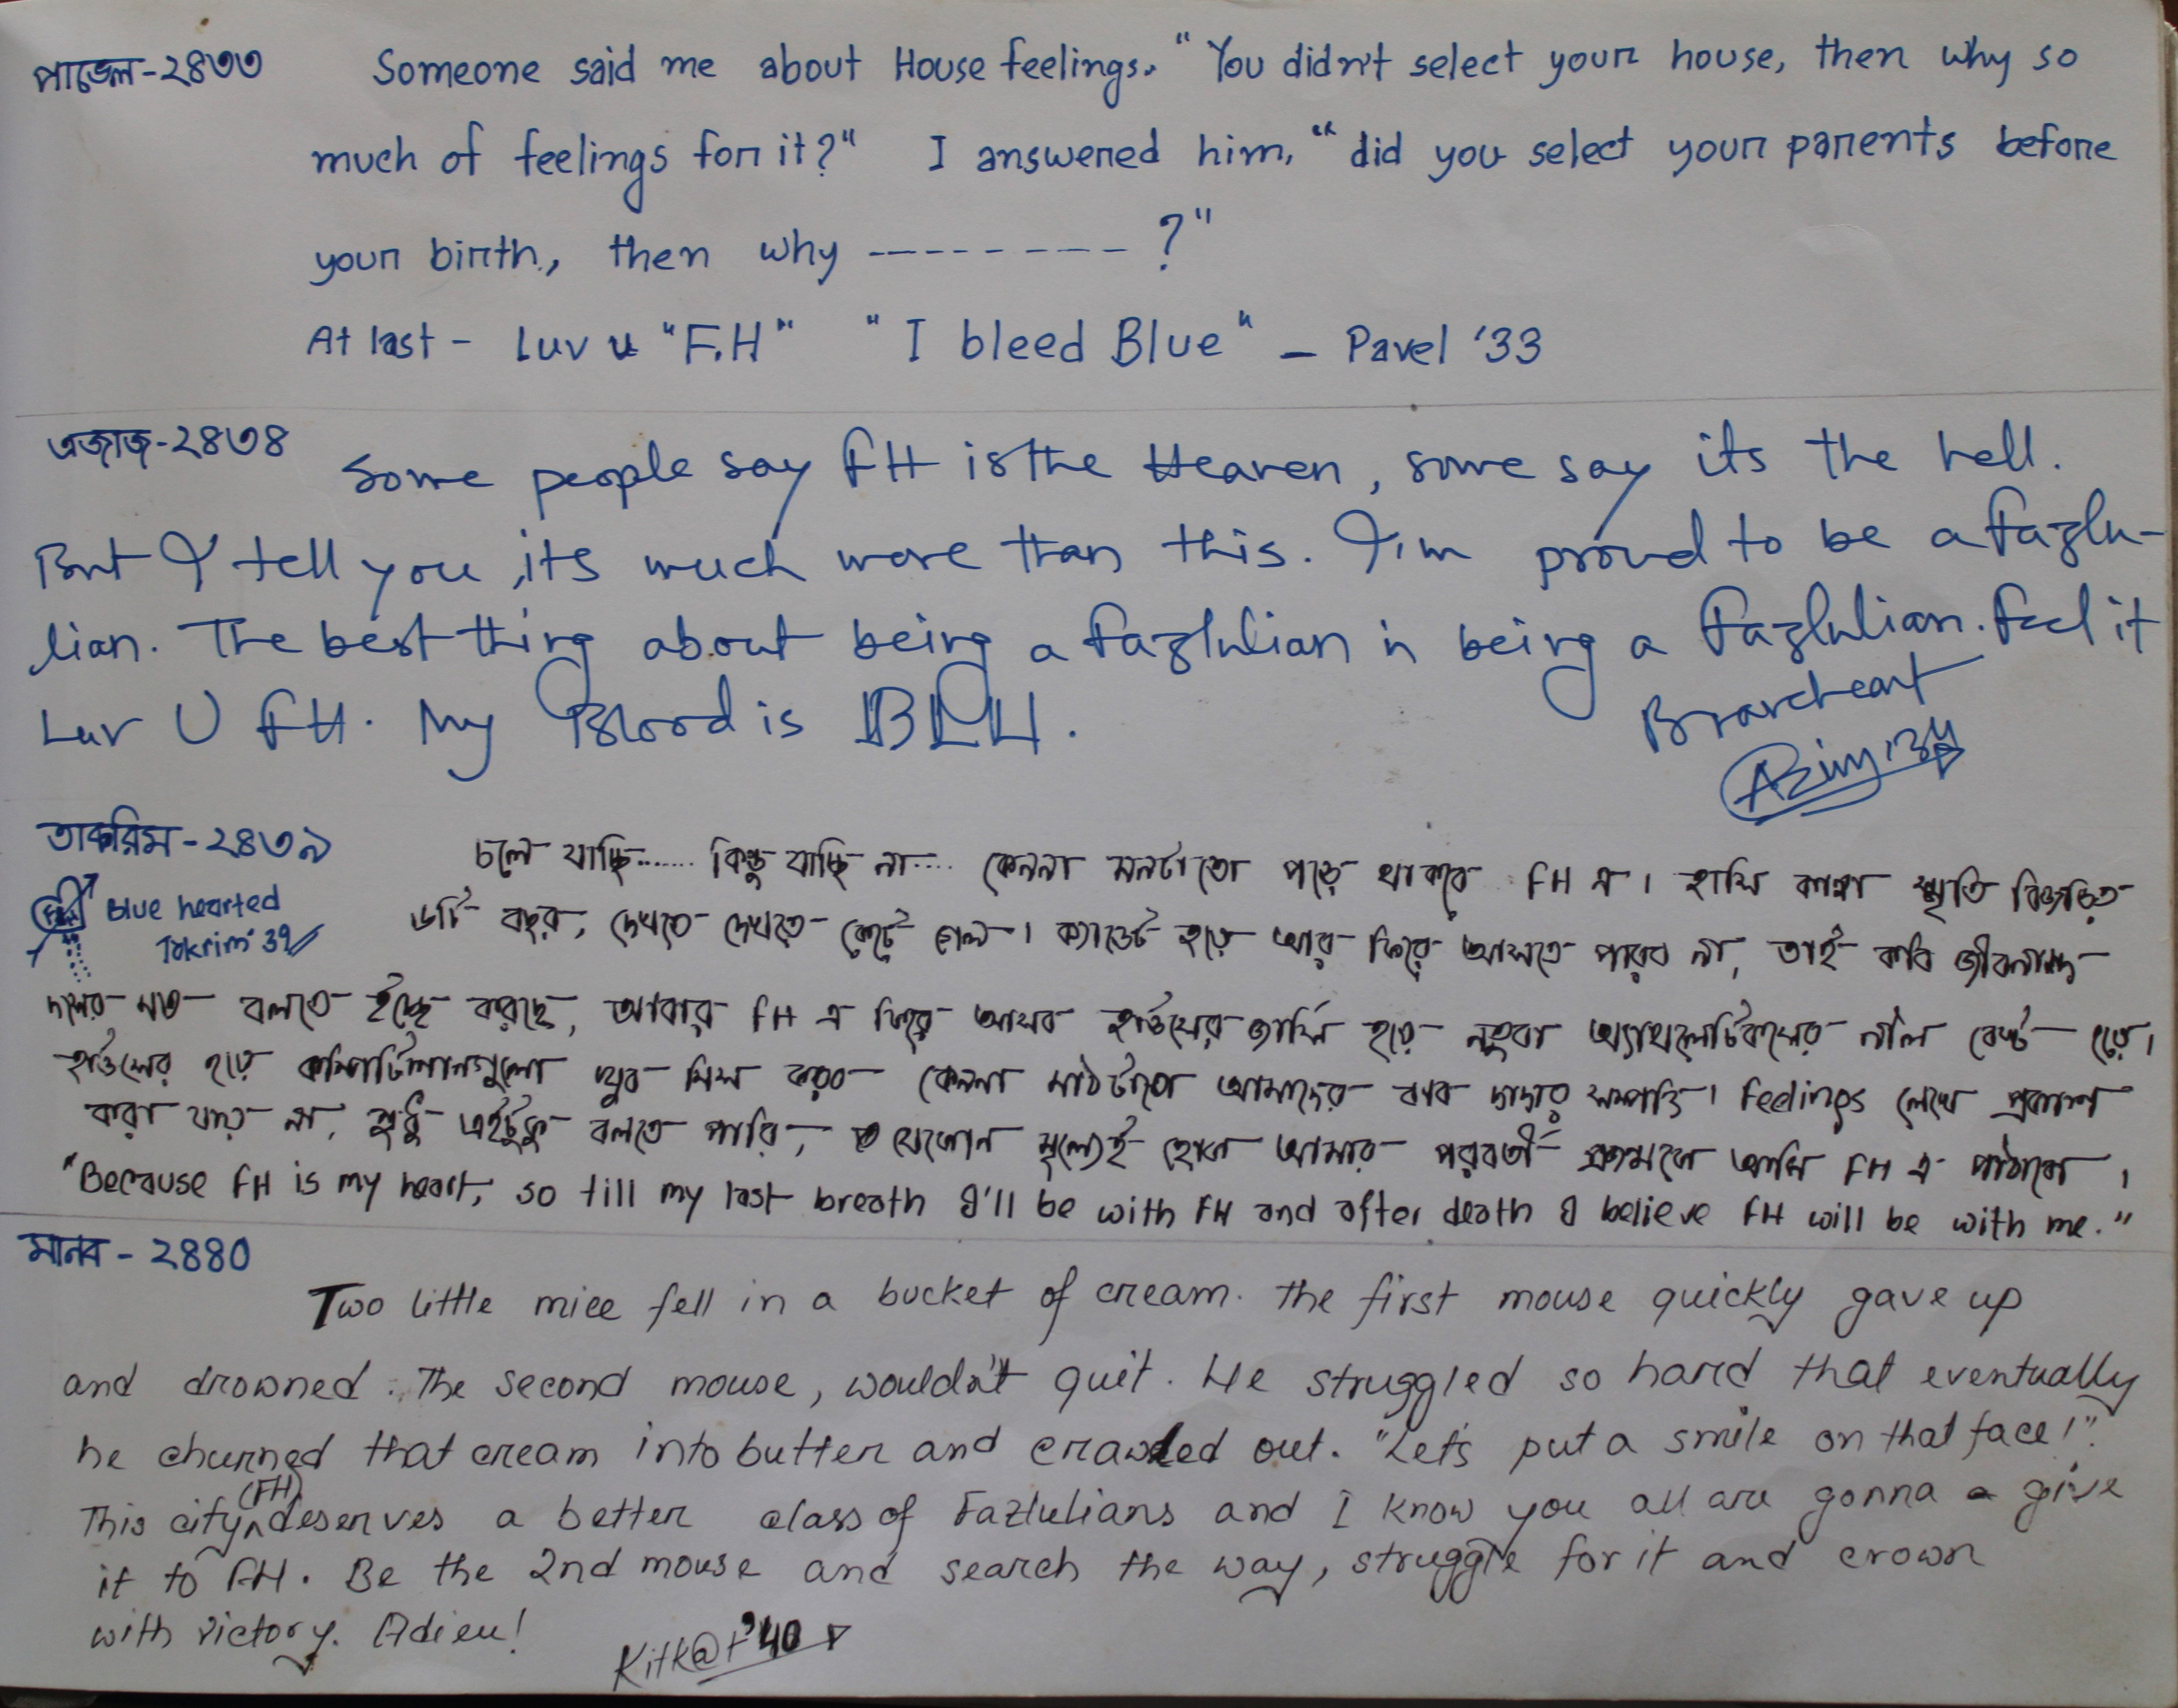 পাভেল-২৪৩৩
Someone said me about House feelings. "You didn't select your house, then why so
much of feelings for it?" I answered him, "did you select your parents before
your birth, then why --------- ?"
At last - Luv u "F.H" "I bleed Blue" - Pavel '33
এজাজ-২৪৩৪
Some people say FH is the Heaven, some say its the hell.
But I tell you, its much more than this. I'm proud to be a Fazlu-
lian. The best thing about being a Fazlulian is being a Fazlulian. Feel it
Luv U FH. My Blood is
Braveheart
'34
তাকরিম-২৪৩৯
চলে যাচ্ছি...... কিন্তু যাচ্ছি না.... কেননা মনটাতো পড়ে থাকবে FH এ। হাসি কান্না স্মৃতি বিজড়িত
Blue hearted
Takrim' 39
৬টি বছর, দেখতে দেখতে কেটে গেল। ক্যাডেট হয়ে আর ফিরে আসতে পারব না, তাই কবি জীবনানন্দ
দাশের মত বলতে ইচ্ছে করছে, আবার FH এ ফিরে আসব হাউসের জার্সি হয়ে নতুবা অ্যাথলেটিকসের নীল বেল্ট হয়ে।
হাউসের হয়ে কম্পিটিশানগুলো খুব মিস করব কেননা মাঠটাতো আমাদের বাব দাদার সম্পত্তি। Feelings লেখে প্রকাশ
করা যায় না, শুধু এইটুকু বলতে পারি, যেকোন মূল্যেই হোক আমার পরবর্তী প্রজন্মকে আমি FH এ পাঠাবো।
"Because FH is my heart, so till my last breath I'll be with FH and after death I believe FH will be with me."
মানব - ২৪৪০
Two little mice fell in a bucket of cream. The first mouse quickly gave up
and drowned. The second mouse, wouldn't quit. He struggled so hard that eventually
he churned that cream into butter and crawled out. "Let's put a smile on that face!".
(FH)
This city ^ deserves a better class of Fazlulians and I know you all are gonna give
it to FH. Be the 2nd mouse and search the way, struggle for it and crown
with victory. Adieu!
Kitk@t '40